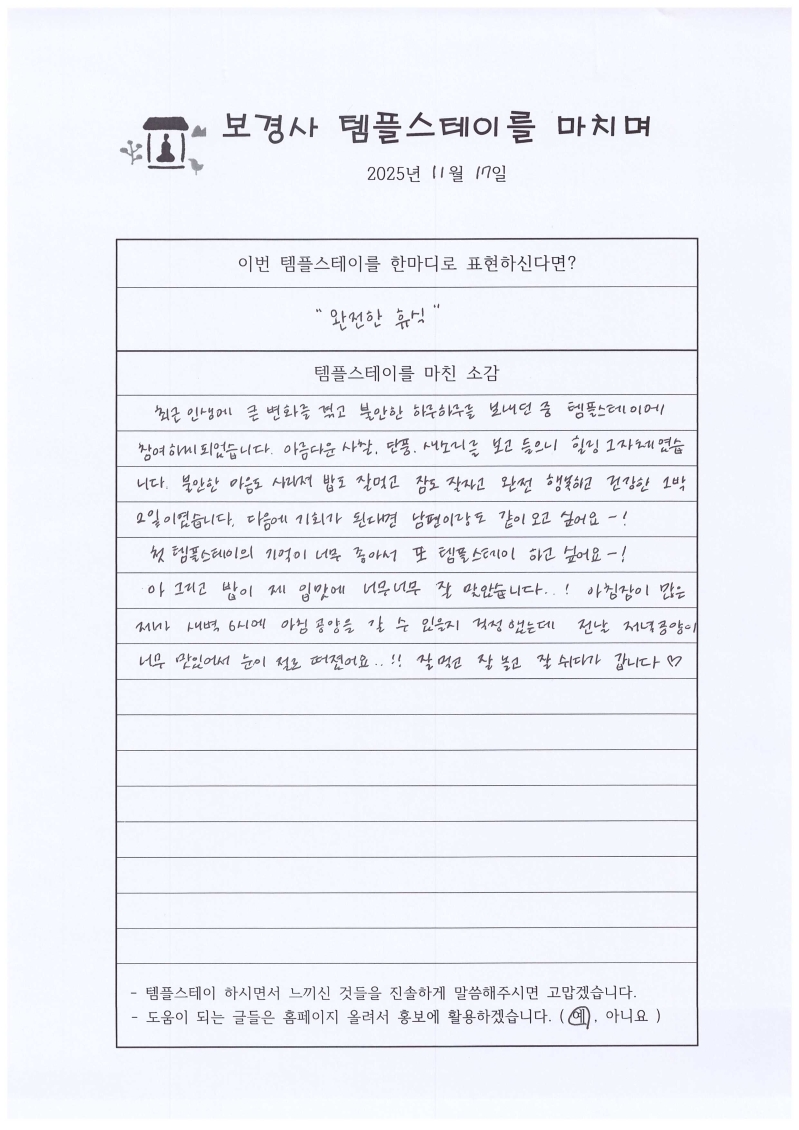 보경사 템플스테이를 마치며
2025년 11월 17일
이번 템플스테이를 한마디로 표현하신다면?
"완전한 휴식"
템플스테이를 마친 소감
최근 인생에 큰 변화를 겪고 불안한 하루하루를 보내던 중 템플스테이에
참여하게 되었습니다. 아름다운 사찰, 단풍, 새소리를 보고 들으니 힐링 그자체였습
니다. 불안한 마음도 사라져 밥도 잘먹고 잠도 잘자고 완전 행복하고 건강한 1박
2일이였습니다. 다음에 기회가 된다면 남편이랑도 같이 오고 싶어요-!
첫 템플스테이의 기억이 너무 좋아서 또 템플스테이 하고 싶어요-!
아 그리고 밥이 제 입맛에 너무너무 잘 맞았습니다..! 아침잠이 많은
제가 새벽 6시에 아침공양을 갈 수 있을지 걱정했는데 전날 저녁공양이
너무 맛있어서 눈이 절로 떠졌어요..!! 잘먹고 잘 놀고 잘 쉬다가 갑니다 ♡
- 템플스테이 하시면서 느끼신 것들을 진솔하게 말씀해주시면 고맙겠습니다.
- 도움이 되는 글들은 홈페이지 올려서 홍보에 활용하겠습니다. ( 예 , 아니요 )